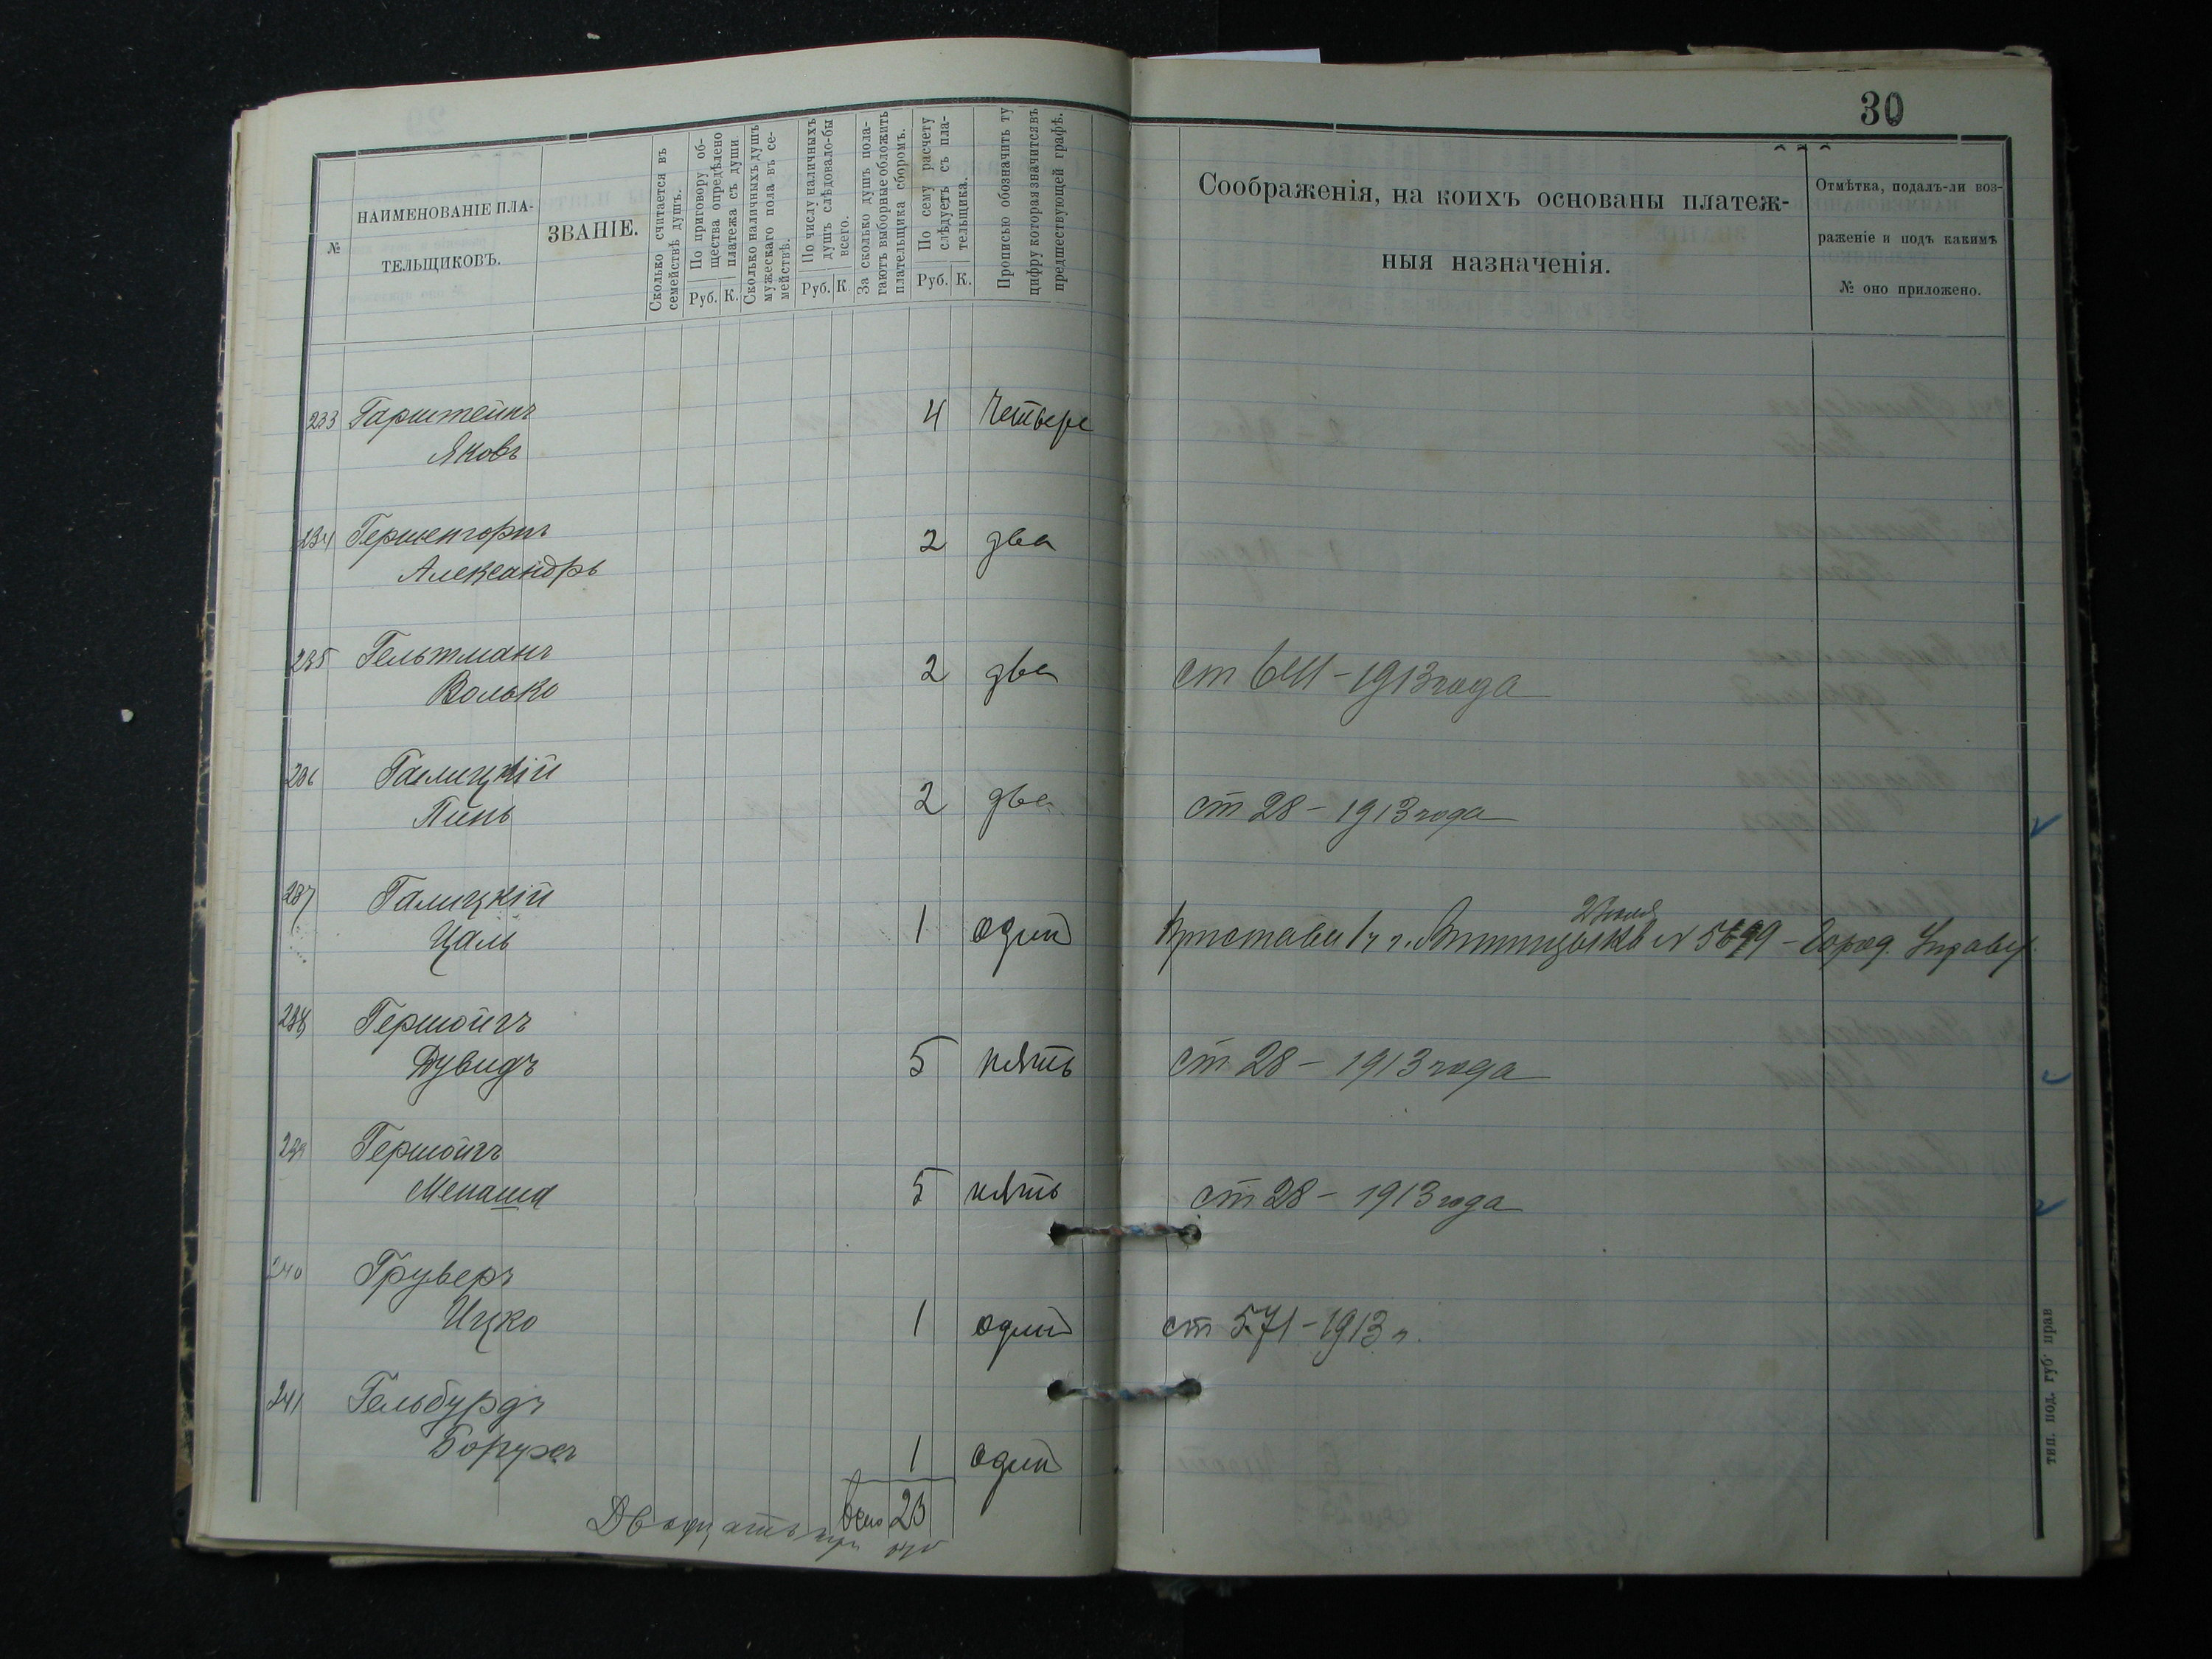 30
№
НАИМЕНОВАНІЕ ПЛА-
ТЕЛЬЩИКОВЪ.
ЗВАНІЕ.
Сколько считается въ
семействѣ душъ.
По приговору об-
щества опредѣлено
платежа съ души.
Руб. К.
Сколько наличныхъ душъ
мужескаго пола въ се-
мействѣ.
По числу наличныхъ
душъ слѣдовало-бы
всего.
Руб. К.
За сколько душъ пола-
гаютъ выборные обложить
плательщика сборомъ.
По сему расчету
слѣдуетъ съ пла-
тельщика.
Руб. К.
Прописью обозначить ту
цифру которая значится въ
предшествующей графѣ.
Соображенія, на коихъ основаны платеж-
ныя назначенія.
Отмѣтка, подалъ-ли воз-
раженіе и подъ какимъ
№ оно приложено.
233 Гарштейнъ 4 Четыре
Яковъ
234 Гершенгорнъ 2 два
Александръ
235 Гельтманъ 2 два ст 641 - 1913 года
Волько
236 Галицкій
Пинь 2 два ст 28 - 1913 года
237 Галицкій
Цаль 1 один Пристава 1 ч г. Винницы № 5699 - Город. Управу
238 Гершойгъ
Дувидъ 5 пять ст 28 - 1913 года
239 Гершойгъ
Менаша 5 пять ст 28 - 1913 года
240 Груверъ
Ицко 1 один ст 571 - 1913 г.
241 Гельбурдъ
Борухъ 1 один
всего 23
Двадцать три руб
тип. под. губ. прав